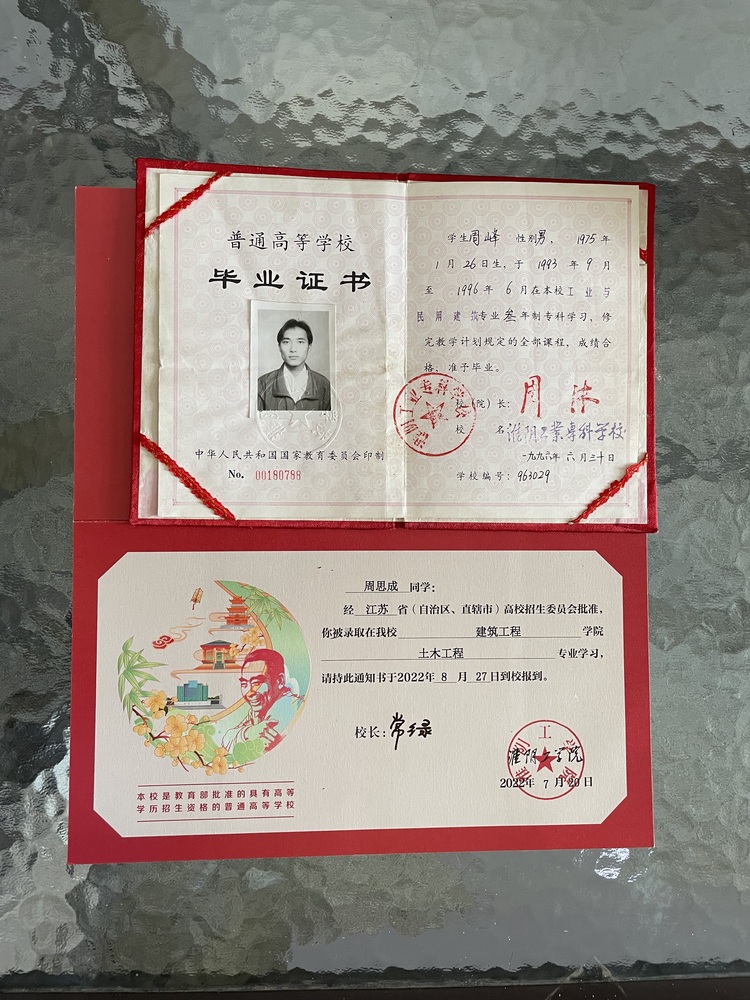 普通高等学校
毕业证书
中华人民共和国国家教育委员会印制
No. 00180788
学生周峰 性别男, 1975年
1月26日生,于1993年9月
至1996年6月在本校工业与
民用建筑专业叁年制专科学习,修
完教学计划规定的全部课程,成绩合
格,准予毕业。
校(院)长:
校名淮阴工业专科学校
淮阴工业专科学校
一九九六年六月三十日
学校编号:963029
周思成 同学:
经 江苏 省(自治区、直辖市)高校招生委员会批准,
你被录取在我校 建筑工程 学院
土木工程 专业学习,
请持此通知书于2022年8月27日到校报到。
校长:常绿
淮阴工学院
淮阴工学院
2022年7月20日
本校是教育部批准的具有高等
学历招生资格的普通高等学校